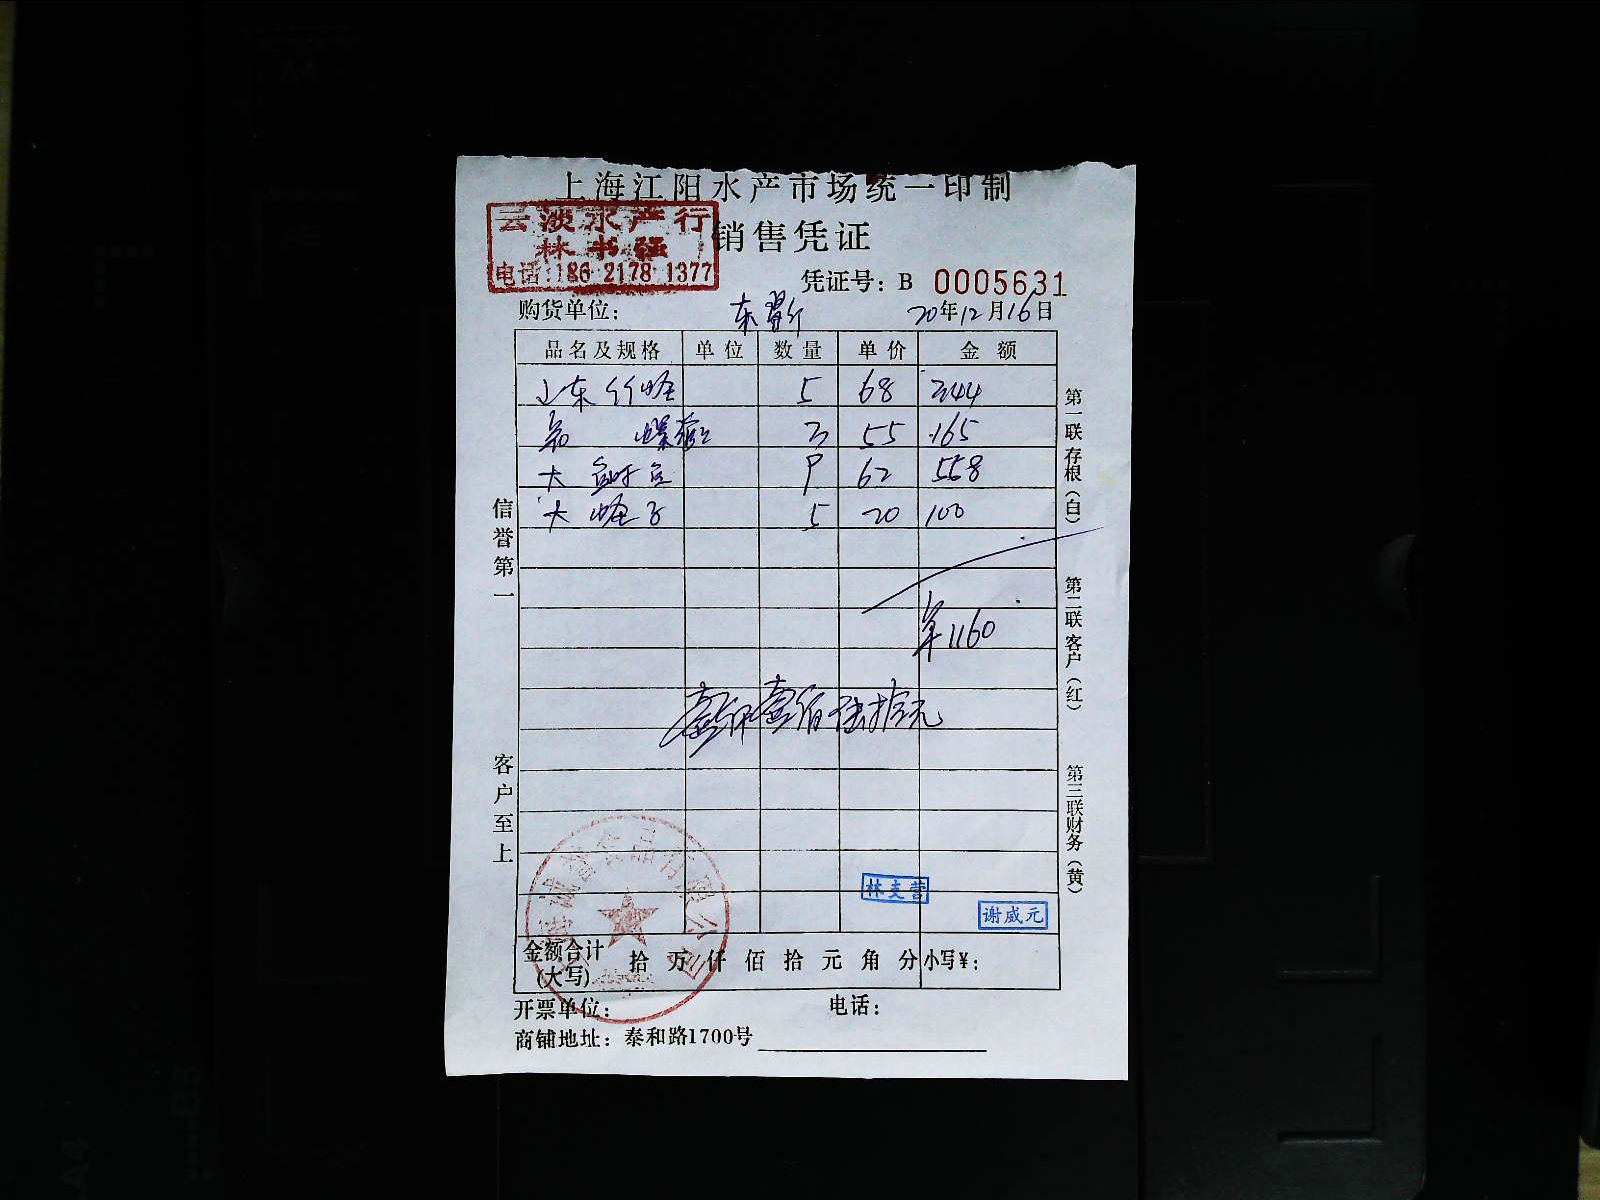 上海江阳水产市场统一印制
云淡水产行
林书强
电话:186 2178 1377
销售凭证
凭证号: B 0005631
购货单位:
20年12月16日
品名及规格 单位 数量 单价 金额
山东竹蛏 5 68 344
螺 3 55 165
大 62 558
大蛏子 5 20 100
¥1160
壹仟壹佰陆拾元
信誉第一
客户至上
第一联存根(白)
第二联客户(红)
第三联财务(黄)
食品有限公司
林支营
谢威元
金额合计(大写) 拾 万 仟 佰 拾 元 角 分 小写¥:
开票单位: 电话:
商铺地址: 泰和路1700号